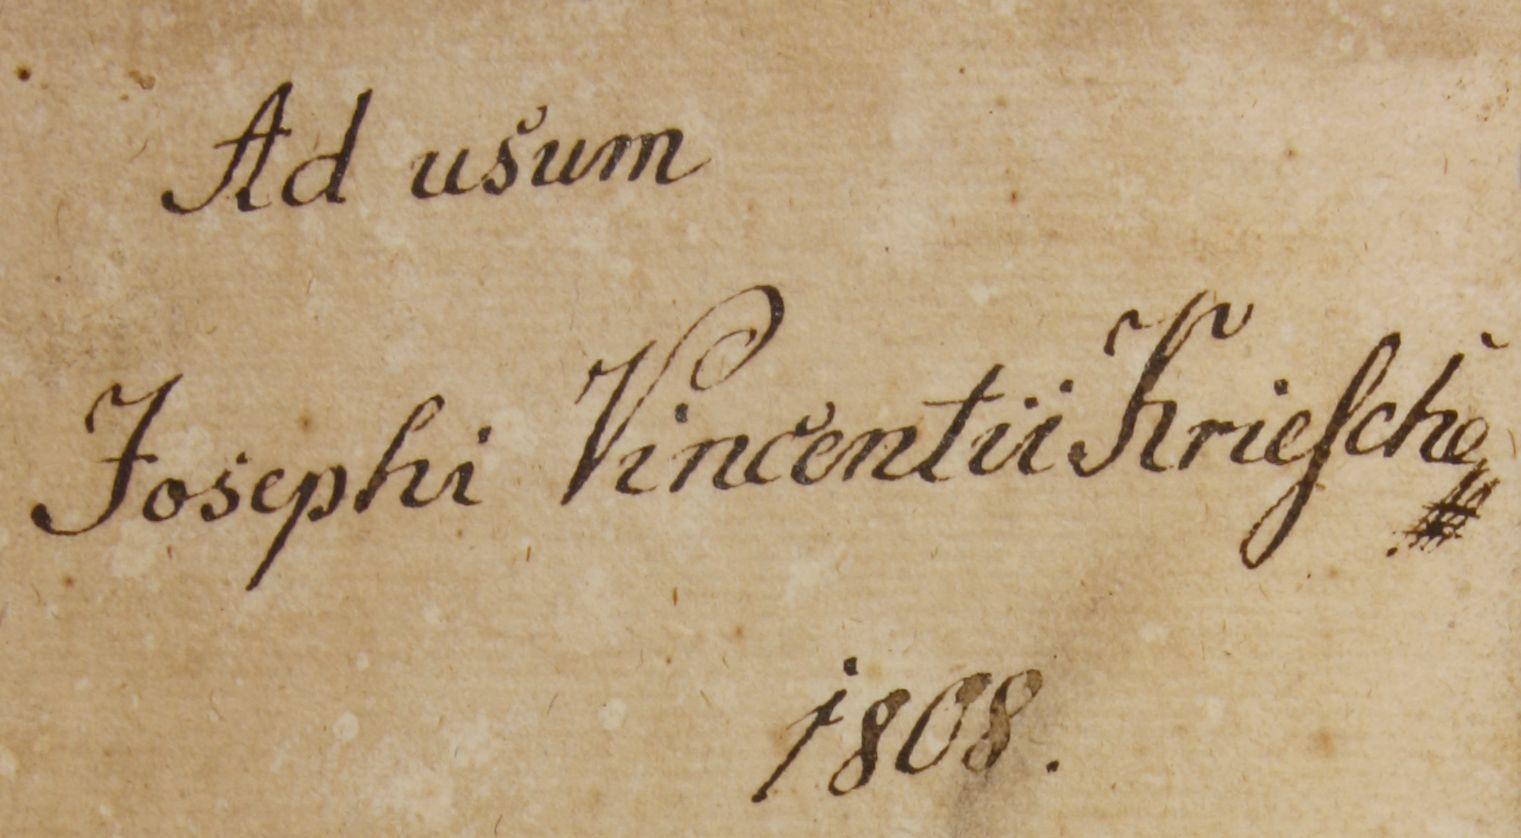 Ad usum
Josephi Vincentii Kriesche
1808.